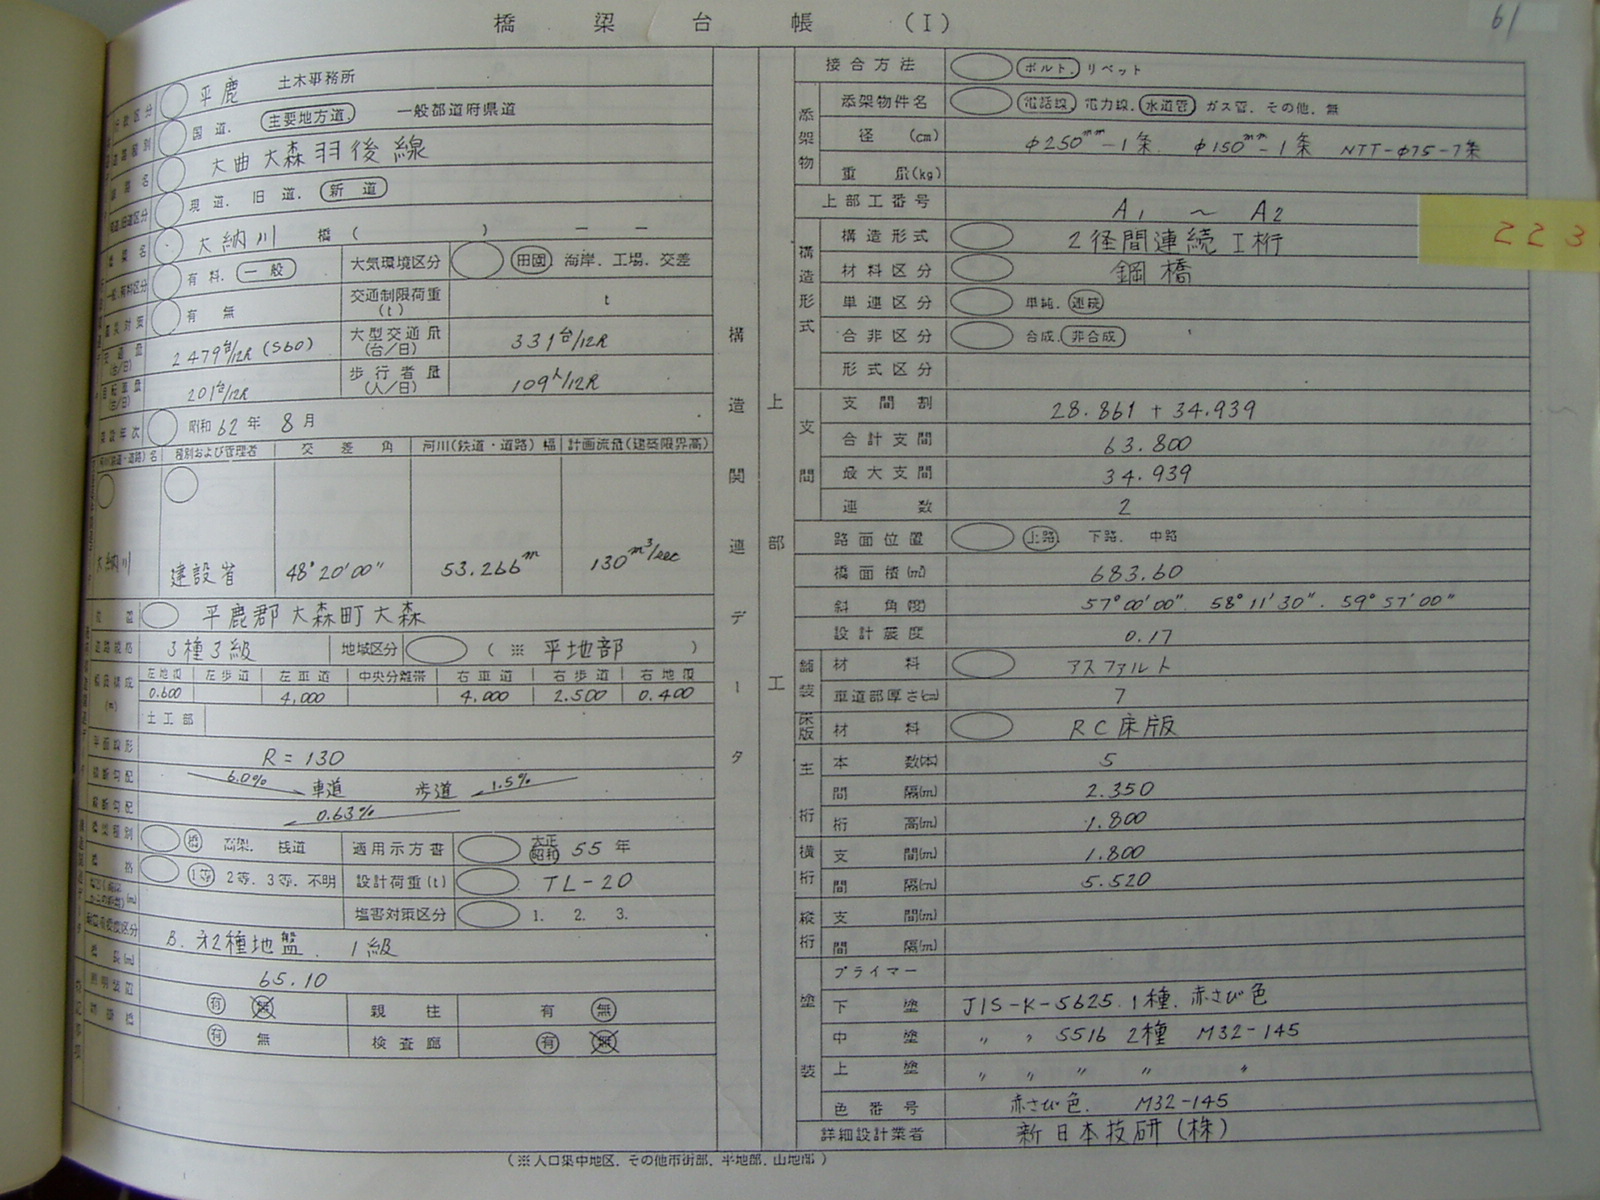 橋梁台帳 (I)
61
平鹿 土木事務所
国道. 主要地方道. 一般都道府県道
路線名 大曲大森羽後線
現道. 旧道. 新道
橋梁名 大納川 橋 ( ) — —
有料. 一般 大気環境区分 田園 海岸. 工場. 交差
有 無 交通制限荷重(t) t
2479台/12R (S60) 大型交通量(台/日) 331台/12R
201台/12R 歩行者量(人/日) 109人/12R
架設年次 昭和62年 8月
河川(鉄道・道路)名 種別および管理者 交差角 河川(鉄道・道路)幅 計画流量(建築限界高)
大納川 建設省 48°20′00″ 53.266m 130m³/sec
位置 平鹿郡大森町大森
道路規格 3種3級 地域区分 (※ 平地部 )
幅員構成(m) 左地覆 左歩道 左車道 中央分離帯 右車道 右歩道 右地覆
0.600 4,000 4.000 2.500 0.400
土工部
平面線形 R=130
6.0% 車道 歩道 1.5%
縦断勾配 0.63%
橋梁種別 橋 高架. 桟道 適用示方書 大正 昭和 55年
橋格 1等 2等. 3等. 不明 設計荷重(t) TL-20
塩害対策区分 1. 2. 3.
B. 才2種地盤. 1級
橋長(m) 65.10
照明装置 有 無 親柱 有 無
有 無 検査廊 有 無
構造関連データ
上部工
接合方法 ボルト. リベット
添架物 添架物件名 電話線. 電力線. 水道管. ガス管. その他. 無
径 (cm) φ250mm-1条. φ150mm-1条 NTT-φ75-7条
重量(kg)
上部工番号 A1 ～ A2
223
構造形式 構造形式 2径間連続I桁
材料区分 鋼橋
単連区分 単純. 連続
合非区分 合成. 非合成
形式区分
支間 支間割 28.861 + 34.939
合計支間 63.800
最大支間 34.939
連数 2
路面位置 上路 下路. 中路
橋面積(㎡) 683.60
斜角(度) 57°00′00″. 58°11′30″. 59°57′00″
設計震度 0.17
舗装 材料 アスファルト
車道部厚さ(cm) 7
床版 材料 RC床版
主桁 本数(本) 5
間隔(m) 2.350
桁高(m) 1.800
横桁 支間(m) 1.800
間隔(m) 5.520
縦桁 支間(m)
間隔(m)
塗装 プライマー
下塗 JIS-K-5625.1種. 赤さび色
中塗 〃 〃 5516 2種 M32-145
上塗 〃 〃 〃 〃 〃
色番号 赤さび色. M32-145
詳細設計業者 新日本技研(株)
(※人口集中地区. その他市街部. 平地部. 山地部)